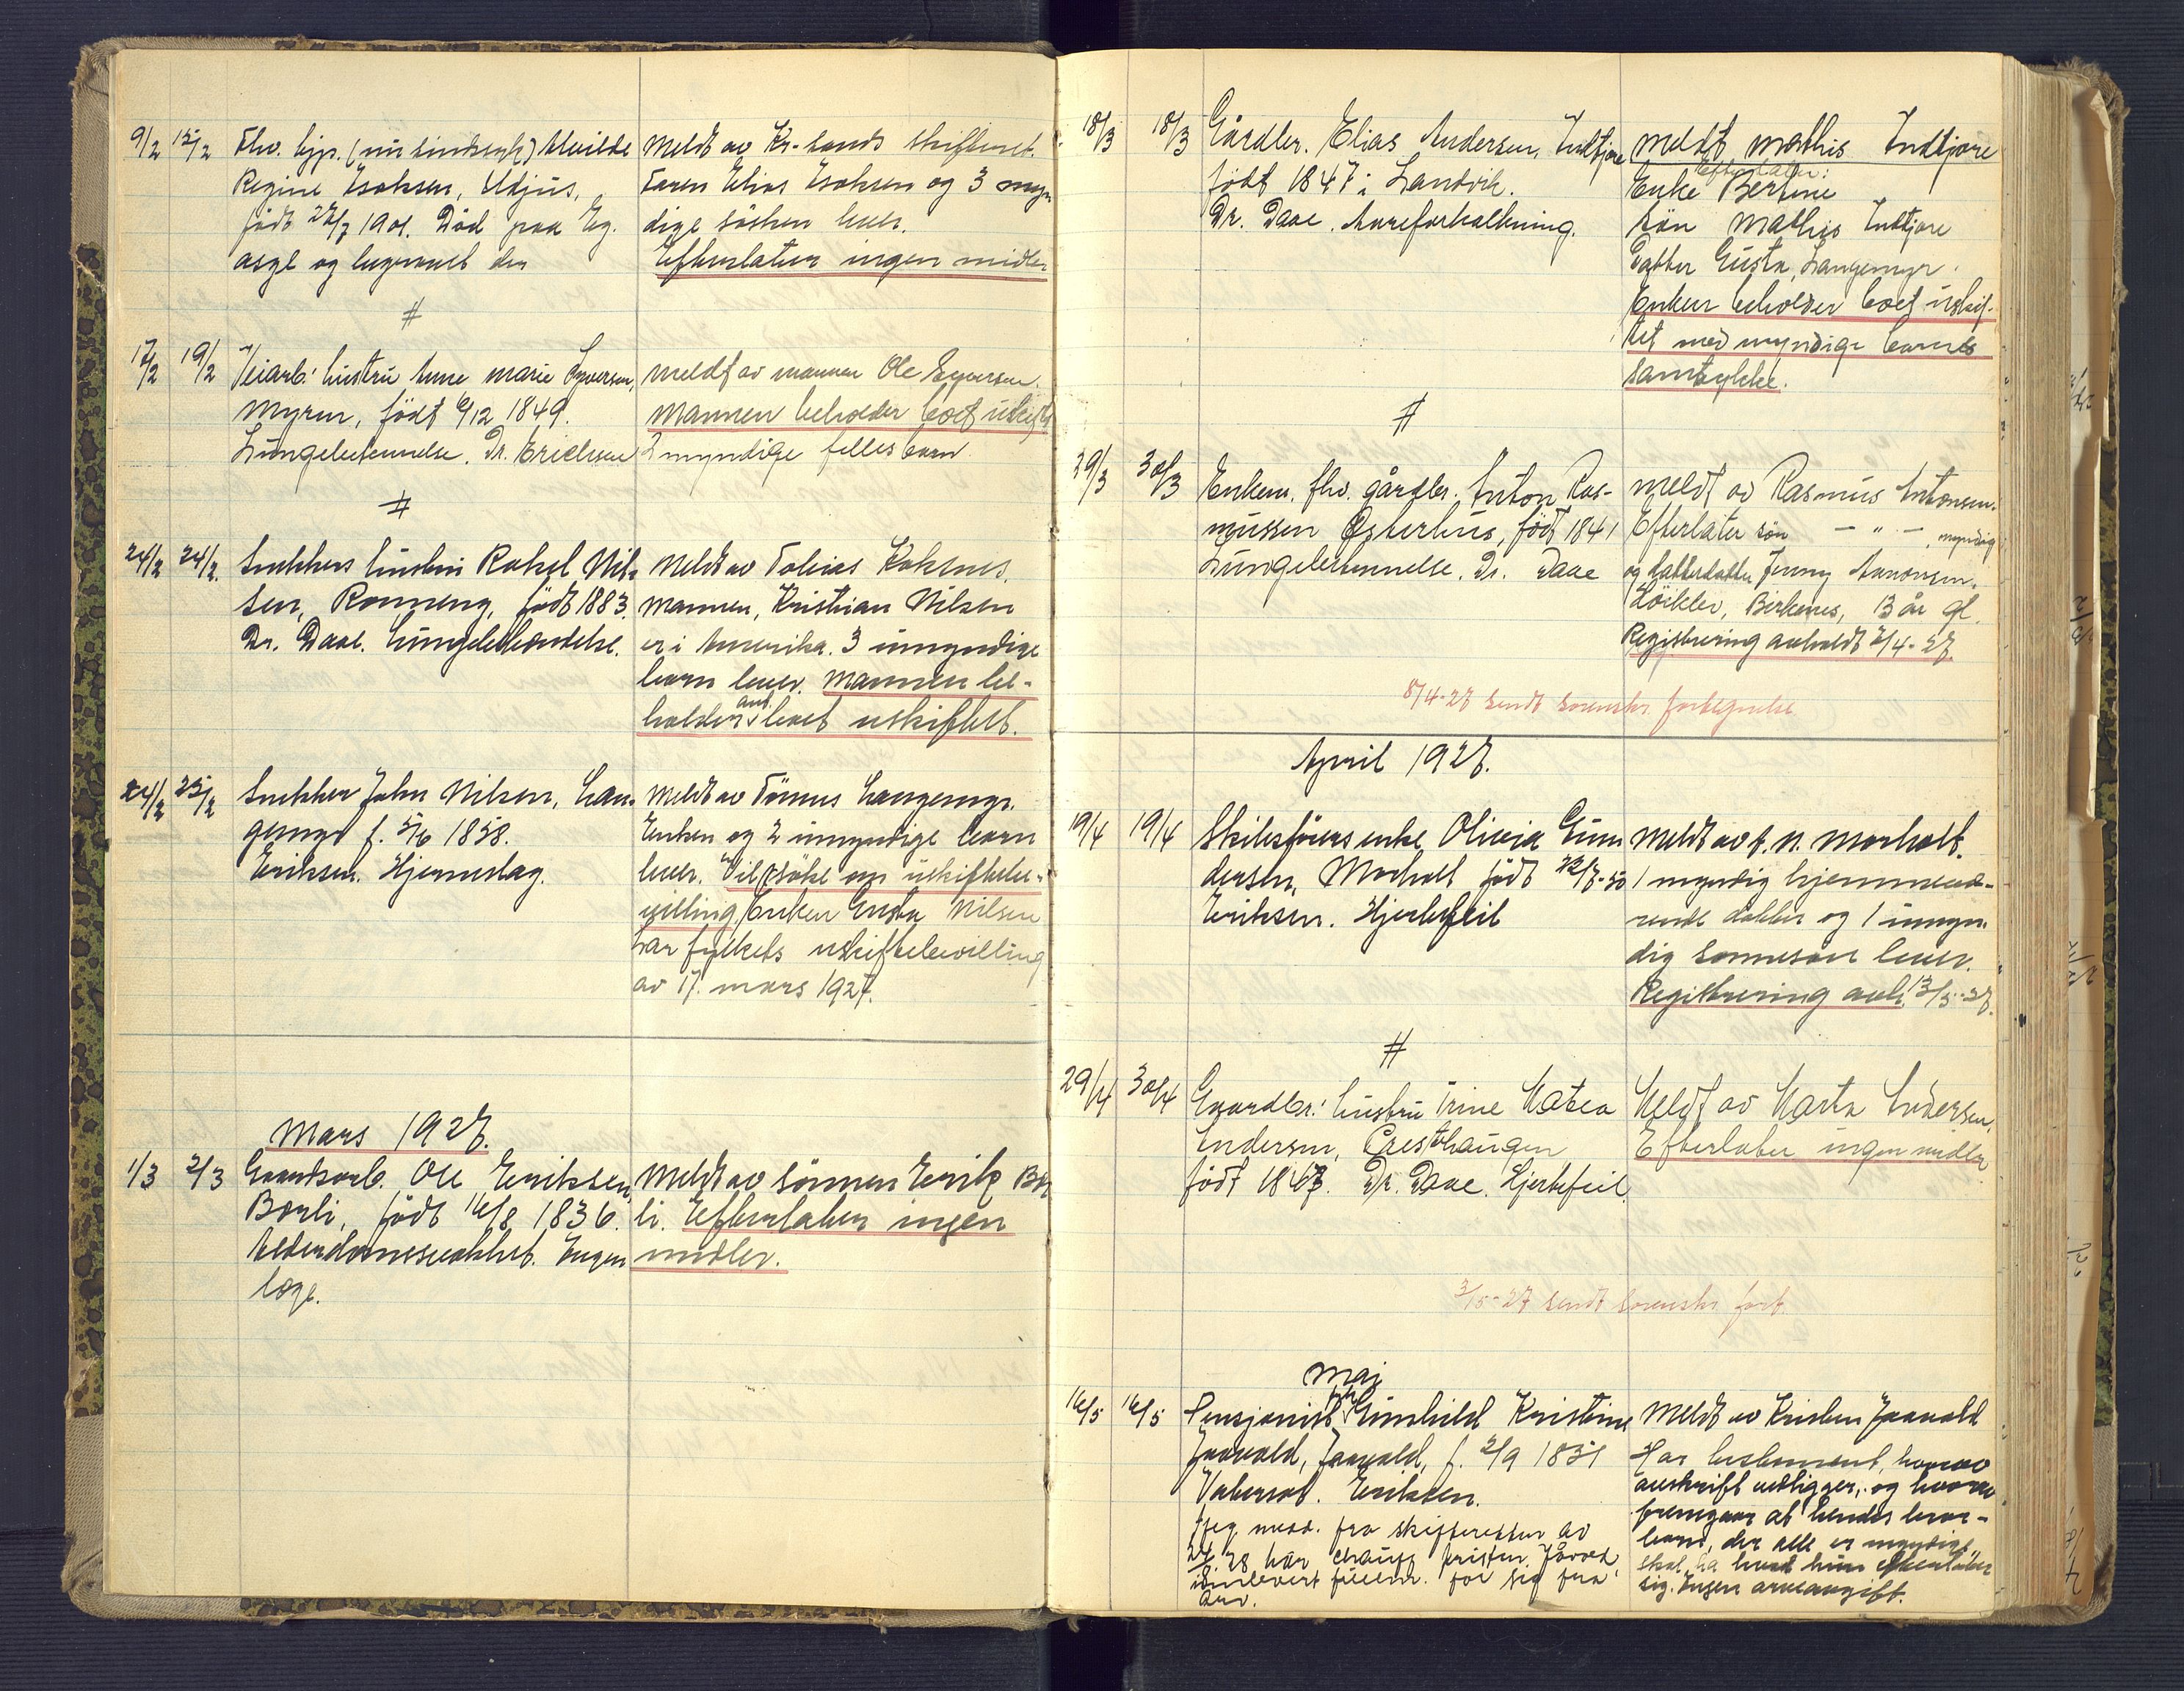 9/2 15/2 Fhv. hjp. (nu sindsyk) Alvilde
Regine Isaksen, Udjus,
født 22/7 1901. Død paa Eg.
asyl og begravet der
Meldt av Kr-sands skifteret.
Faren Elias Isaksen og 3 myn-
dige søsken lever.
Efterlater ingen midler
#
17/2 19/2 Veiarb: hustru Anne Marie Syversen,
Myren, født 6/12 1849.
Lungebetennelse. Dr. Erichsen
Meldt av mannen Ole Syversen.
Mannen beholder boet uskiftet
2 myndige felles barn
#
24/2 24/2. Snekkers hustru Rakel Nil-
sen, Ronneng, født 1883.
Dr. Daae. Lungebetændelse.
Meldt av Tobias Roksnes.
Mannen, Kristian Nilsen
er i Amerika. 3 umyndige
barn lever. Mannen be-
holder ant. boet uskiftet.
24/2 25/2 Snekker John Nilsen, Lan-
gemyr f. 5/6 1858.
Eriksen. Hjerneslag.
Meldt av Tønnes Langemyr.
Enken og 2 umyndige barn
lever. Vil søke om uskiftebe-
villing. Enken Gusta Nilsen
har fylkets uskiftebevilling
av 17. mars 1927.
Mars 1927.
1/3 2/3 Gaardsarb. Ole Eriksen
Borli, født 16/8 1836.
Alderdomssvakhet. Ingen
læge.
Meldt av sønnen Erik Bor-
li. Efterlater ingen
midler.
18/3 18/3 Gårdbr. Elias Andersen, Indtjore
født 1847 i Landvik.
Dr. Daae. Åreforkalkning.
Meldt Mathis Indtjore
Efterlater:
Enke Bertine
Søn Mathis Indtjore
Datter Gusta, Langemyr.
Enken beholder boet uskif-
tet med myndige barns
samtykke.
#
29/3 30/3 Enkem. fhv. gårdbr. Anton Ras-
mussen Østerhus, født 1841
Lungebetennelse. Dr. Daae
Meldt av Rasmus Antonsen.
Efterlater søn — " — , myndig
og datterdatter Jenny Aanonsen.
Birkenes, 13 år gl.
Registrering avholdt 2/4-27.
8/4-27 sendt sorenskr. fortegnelse
April 1927.
19/4 19/4 Skibsførers enke Olivia Gun-
dersen, Morholt født 22/7-50
Eriksen. Hjertefeil
Meldt av f. n. Morholt.
1 myndig hjemmevæ-
rende datter og 1 umyn-
dig sønnesøn lever.
Registrering avh. 13/5-27.
#
29/4 30/4 Gaardbr: hustru Trine Matea
Andersen, Presthaugen
født 1867. Dr. Daae. Hjertefeil.
Meldt av Marta Andersen.
Efterlater ingen midler
3/5-27 sendt sorenskr fort.
Mai
16/5 16/5 Pensjonist frk Gunhild Kristine
Jaavold, Jaavold, f. 2/9 1851
Vatersot. Eriksen.
Meldt av Kristen Jaavold
Har testament, hvorav
avskrift vedligger, og hvorav
fremgaar at hendes bror-
barn, der alle er myndige,
skal ha hvad hun efterlater
sig. Ingen arveavgift.
Iflg. medd. fra skifteretten av